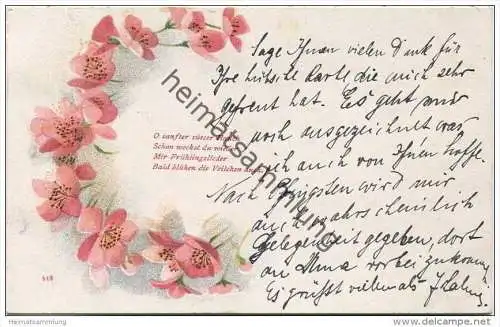 Sage Ihnen vielen Dank für
Ihre hübsche Karte die mich sehr
gefreut hat. Es geht mir
noch ausgezeichnet was
ich auch von Ihnen hoffe.
Nach Pfingsten wird mir
auch wahrscheinlich
Gelegenheit gegeben, dort
an Alma vorbei zu kommen.
Es grüßt vielmals
O sanfter süsser Hauch
Schon weckst du wieder
Mir Frühlingslieder
Bald blühen die Veilchen auch.
heimatsammlung
Heimatsammlung